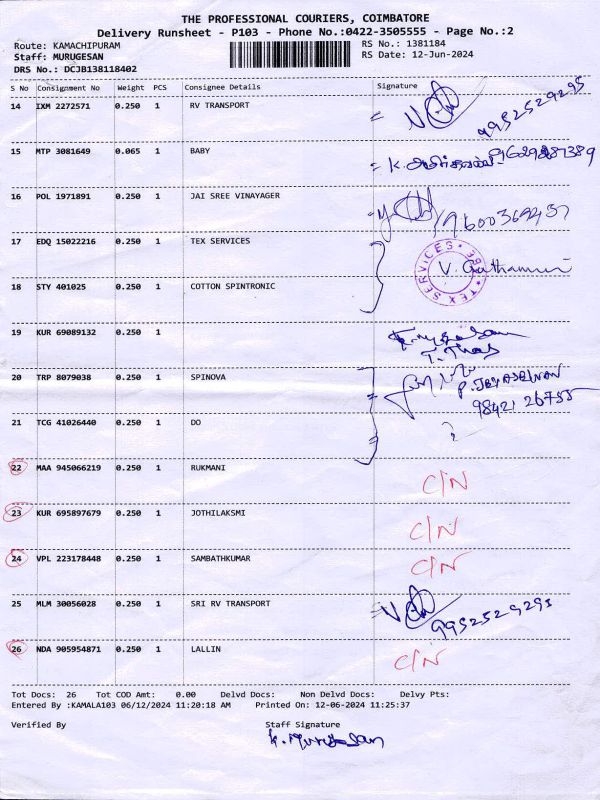 THE PROFESSIONAL COURIERS, COIMBATORE
Delivery Runsheet - P103 - Phone No.:0422-3505555 - Page No.:2
Route: KAMACHIPURAM RS No.: 1381184
Staff: MURUGESAN RS Date: 12-Jun-2024
DRS No.: DCJB138118402
S No Consignment No Weight PCS Consignee Details Signature
14 IXM 2272571 0.250 1 RV TRANSPORT 9952529295
15 MTP 3081649 0.065 1 BABY
16 POL 1971891 0.250 1 JAI SREE VINAYAGER
17 EDQ 15022216 0.250 1 TEX SERVICES
18 STY 401025 0.250 1 COTTON SPINTRONIC
19 KUR 69089132 0.250 1
20 TRP 8079038 0.250 1 SPINOVA
98421 26755
21 TCG 41026440 0.250 1 DO
22 MAA 945066219 0.250 1 RUKMANI C/N
23 KUR 695897679 0.250 1 JOTHILAKSMI C/N
24 VPL 223178448 0.250 1 SAMBATHKUMAR C/N
25 MLM 30056028 0.250 1 SRI RV TRANSPORT 9952529295
26 NDA 905954871 0.250 1 LALLIN C/N
Tot Docs: 26 Tot COD Amt: 0.00 Delvd Docs: Non Delvd Docs: Delvy Pts:
Entered By :KAMALA103 06/12/2024 11:20:18 AM Printed On: 12-06-2024 11:25:37
Verified By Staff Signature
K. Murugesan